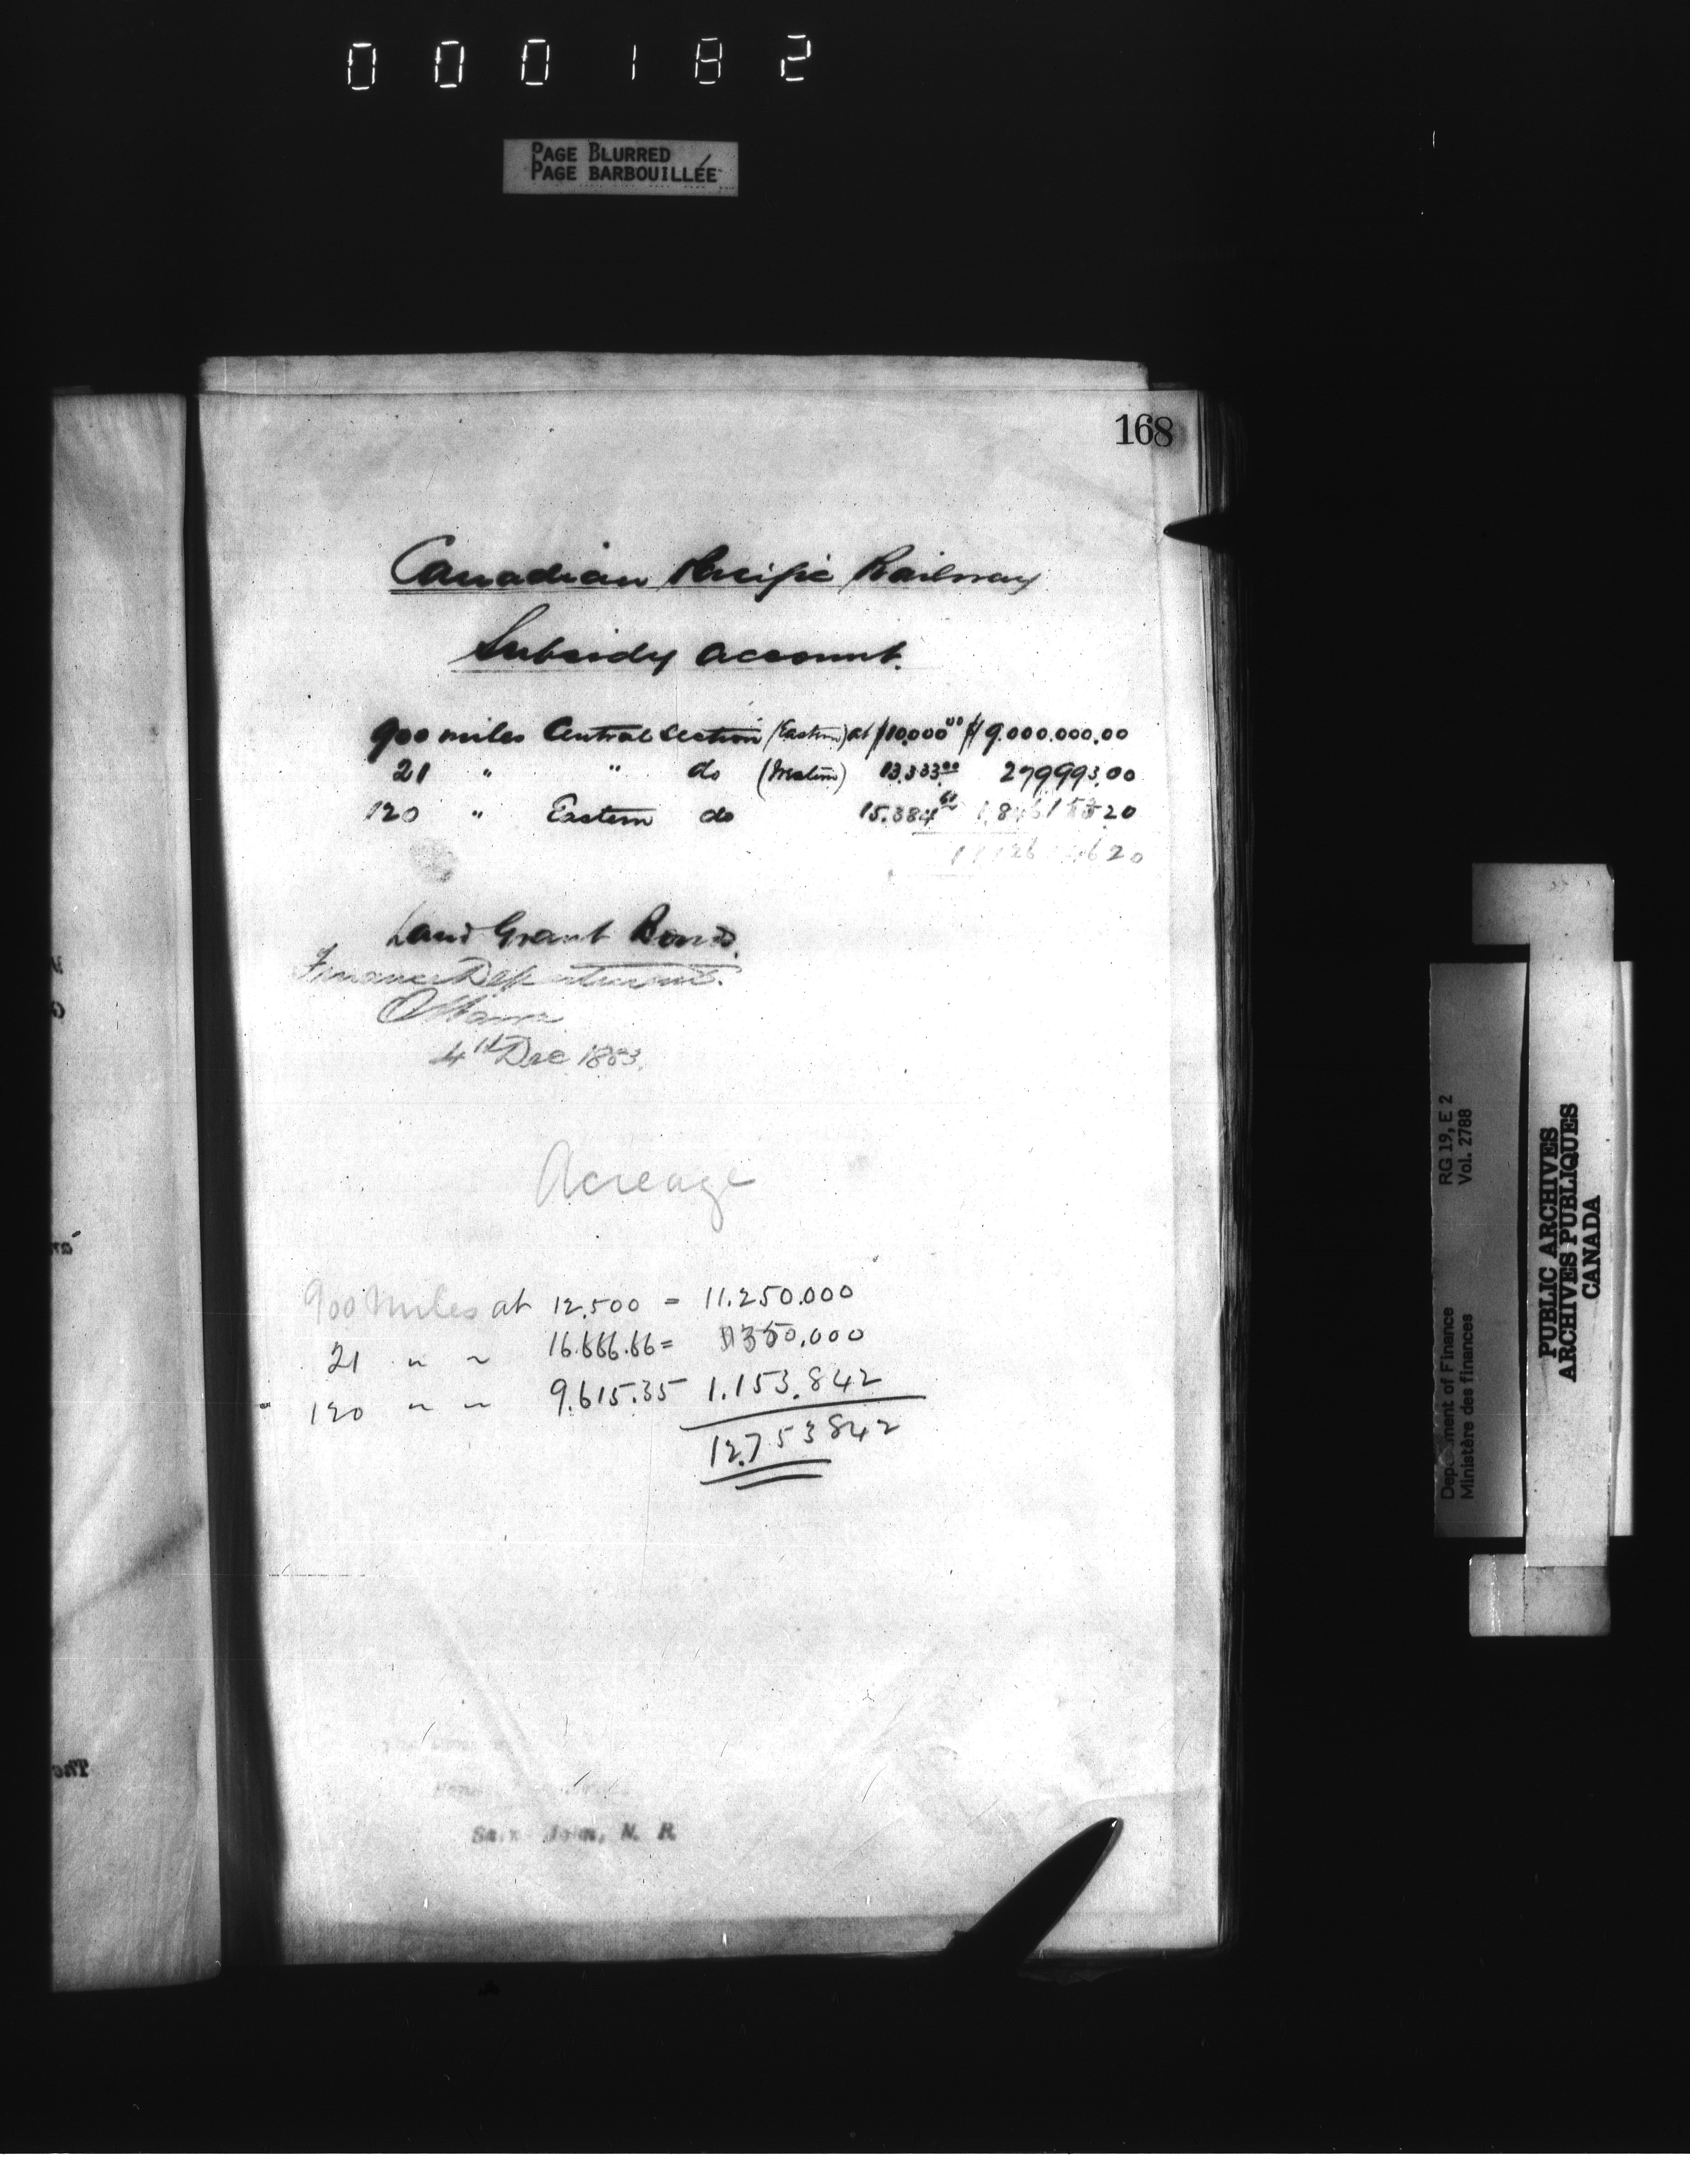 000182
PAGE BLURRED
PAGE BARBOUILLÉE
168
Canadian Pacific Railway
Subsidy Account.
900 miles Central Section (Eastern) at $10,000 00 $9.000.000.00
21 " " do (Western) 13.333 00 279993.00
120 " Eastern do 15.384 61 1,846153 20
11126 14620
Land Grant Bonds.
Finance Department.
Ottawa
4th Dec 1883.
Acreage
900 miles at 12.500 = 11.250.000
21 " " 16.666.66 = 350.000
120 " " 9.615.35 1.153.842
12.753842
Saint John, N. B.
The
RG 19, E 2
Vol. 2788
Department of Finance
Ministère des finances
PUBLIC ARCHIVES
ARCHIVES PUBLIQUES
CANADA